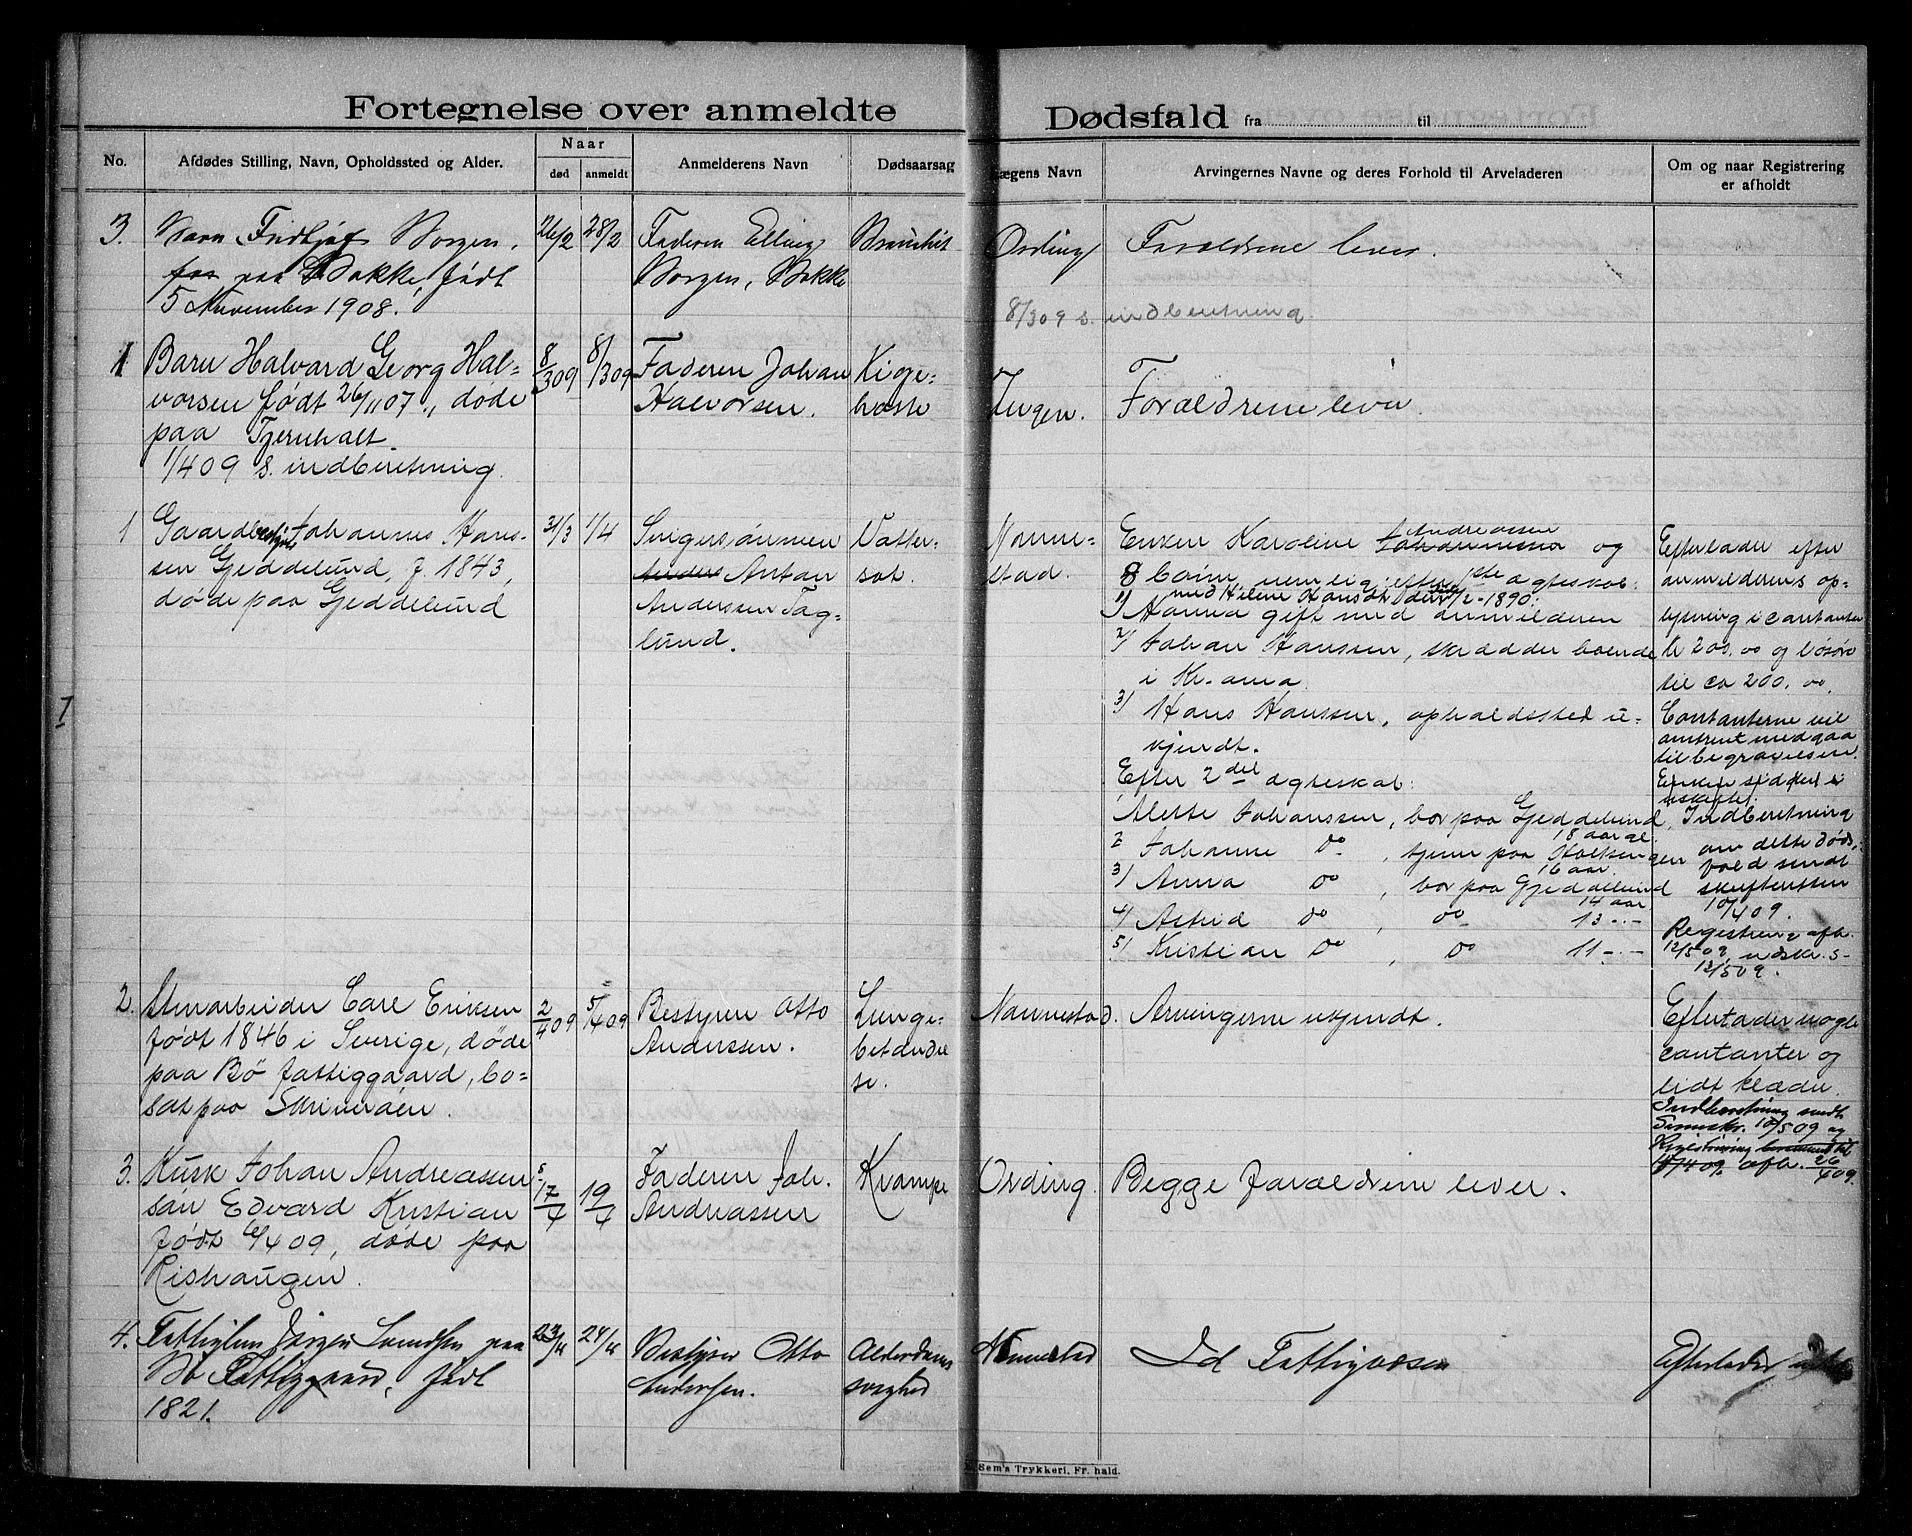 Fortegnelse over anmeldte
Dødsfald fra til
No.
Afdødes Stilling, Navn, Opholdssted og Alder.
Naar
død
anmeldt
Anmelderens Navn
Dødsaarsag
ægens Navn
Arvingernes Navne og deres Forhold til Arveladeren
Om og naar Registrering
er afholdt
3.
Barn Fridtjof Borgen,
paa Bakke, født
5 November 1908.
26/2
28/2
Faderen Elling
Borgen, Bakke
Bronchit
Ording
Forældrene lever.
8/309 s. indberetning.
1
Barn Halvard Georg Hal=
vorsen født 26/1107, døde
paa Tjernholt
1/409 s. indberetning.
8/309
8/309
Faderen Johan
Halvorsen.
Kige=
hoste
Ingen.
Forældrene lever.
1
Gaardbestyrer Johannes Hans=
sen Gjeddelund, f. 1843,
døde paa Gjeddelund
31/3
1/4
Svigersønnen
Anders Anton
Andersen Tag=
lund.
Vatter=
sot.
Nanne=
stad.
Enken Karoline Johannessen Andreassen og
8 børn, nemlig efter 1ste ægteskab
med Helene Hansdtr død 1/2-1890:
1/ Hanna gift med anmelderen
2/ Johan Hanssen, skrædder boende
i Kr.ania
3/ Hans Hanssen, opholdssted u=
kjendt.
Efter 2det ægteskab:
Alette Johanssen, bor paa Gjeddelund,
18 aar gl.
2 Johanne do, tjener paa Holtengen
16 aar.
3/ Anna do, bor paa Gjeddelund
14 aar
4/ Astrid do, do 13 -"-
5/ Kristian do, do 11 -"-
Efterlader efter
anmelderens op=
lysning i contanter
kr 200.00 og løsøre
til ca 200.00.
Contanterne vil
omtrent medgaa
til begravelsen.
Enken sidder i
uskiftet.
Indberetning
om dette døds=
fald sendt
skifteretten
10/409.
Registrering afh.
12/509, udskr. s-
12/509.
2.
Stenarbeider Carl Eriksen
født 1846 i Sverige, døde
paa Bø fattiggaard, bo=
sat paa Skriverøen.
2/409
5/409
Bestyrer Otto
Anderssen.
Lunge=
betændel
se.
Nannestad.
Arvingerne ukjendt.
Efterlader nogle
contanter og
lidt klæder.
Indberetning sendt
Sorenskr. 10/509 og
Registrering berammet til
afh. 26/409.
3.
Husm Johan Andreassen
søn Edvard Kristian
født 6/409, døde paa
Rishaugen.
17/4
19/4
Faderen Joh.
Andreassen
Krampe
Ording.
Begge forældrene lever.
4.
Fattiglem Jørgen Svendsen paa
Bø Fattiggaard, født
1821.
23/4
24/4
Bestyrer Otto
Andersen.
Alderdoms
svaghed
Nannestad
Fattigvæsen
Efterlader intet
I
Sem's Trykkeri, Fr. hald.